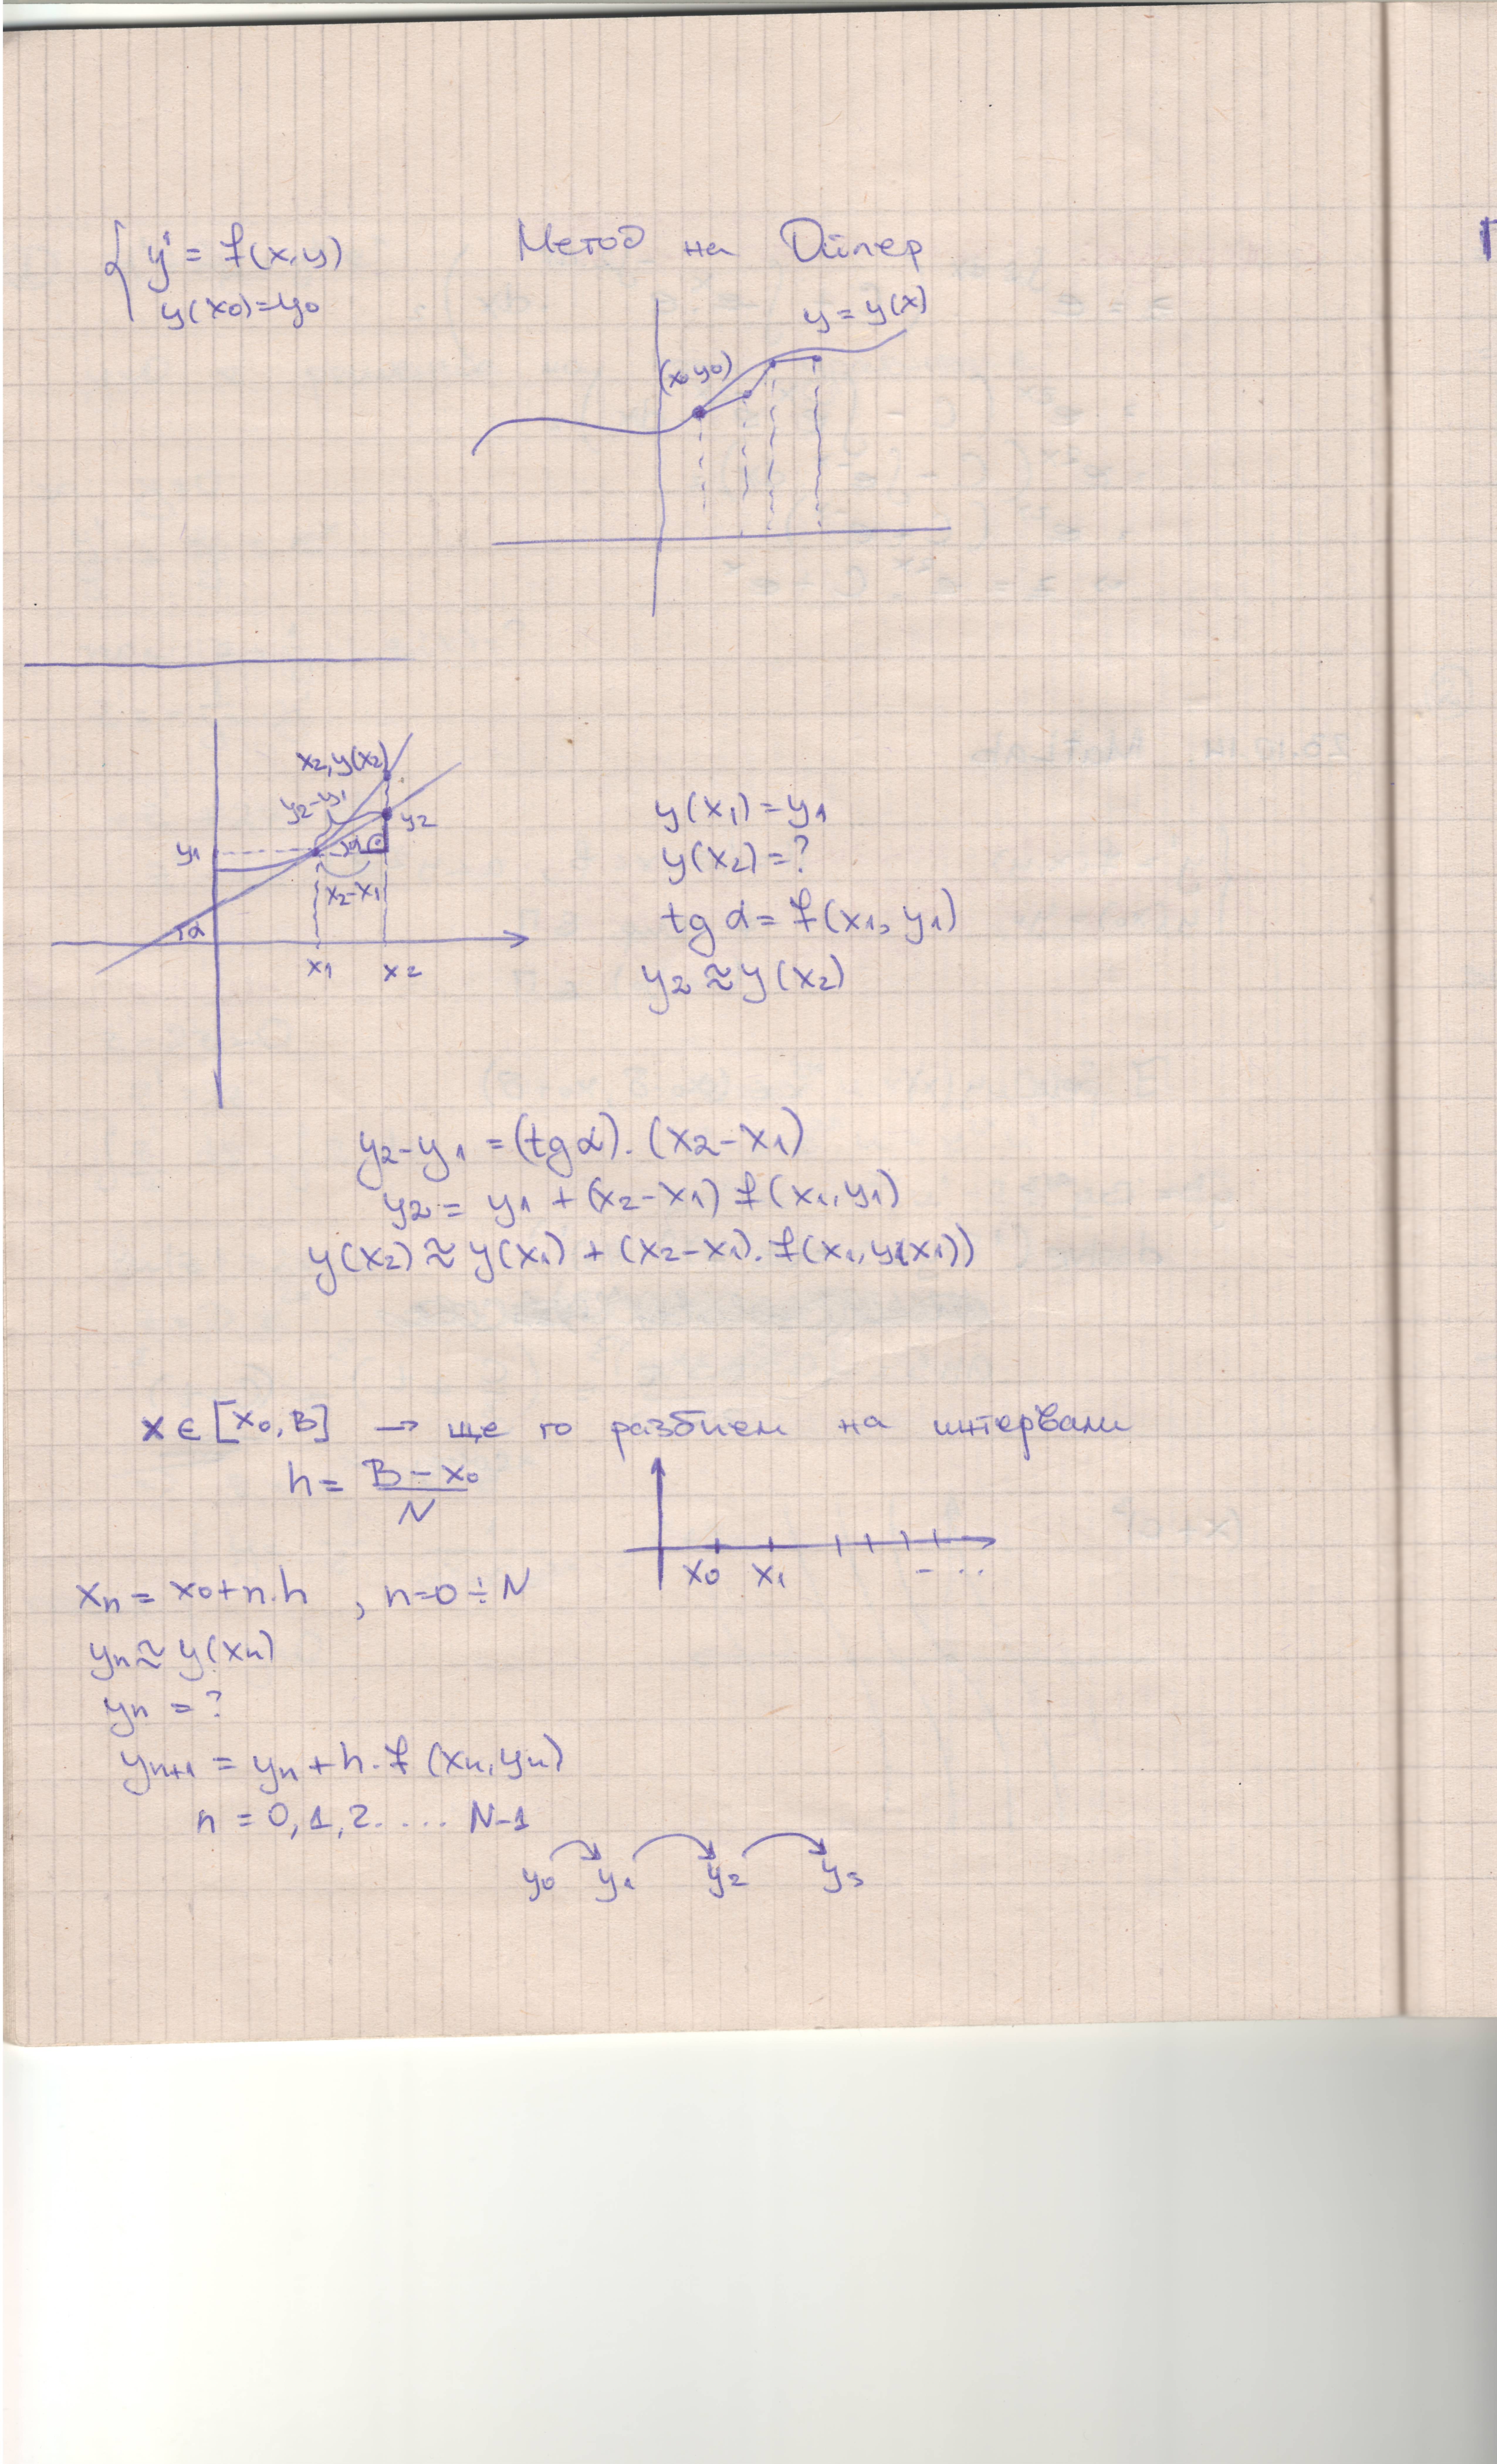 Метод на Ойлер
{ y' = f(x,y)
y(x0)=y0
y = y(x)
(x0 y0)
x2, y(x2)
y2-y1
y2
y1
α
x2-x1
α
x1 x2
y(x1) = y1
y(x2) = ?
tg α = f(x1, y1)
y2 ≈ y(x2)
y2-y1 = (tg α). (x2-x1)
y2 = y1 + (x2-x1) f(x1, y1)
y(x2) ≈ y(x1) + (x2-x1). f(x1, y(x1))
x ∈ [x0, B] → ще го разбием на интервали
h = B - x0 / N
x0 x1 - ..
xn = x0+n.h , n=0÷N
yn ≈ y(xn)
yn = ?
yn+1 = yn + h. f(xn, yn)
n = 0, 1, 2..... N-1
y0 y1 y2 y3